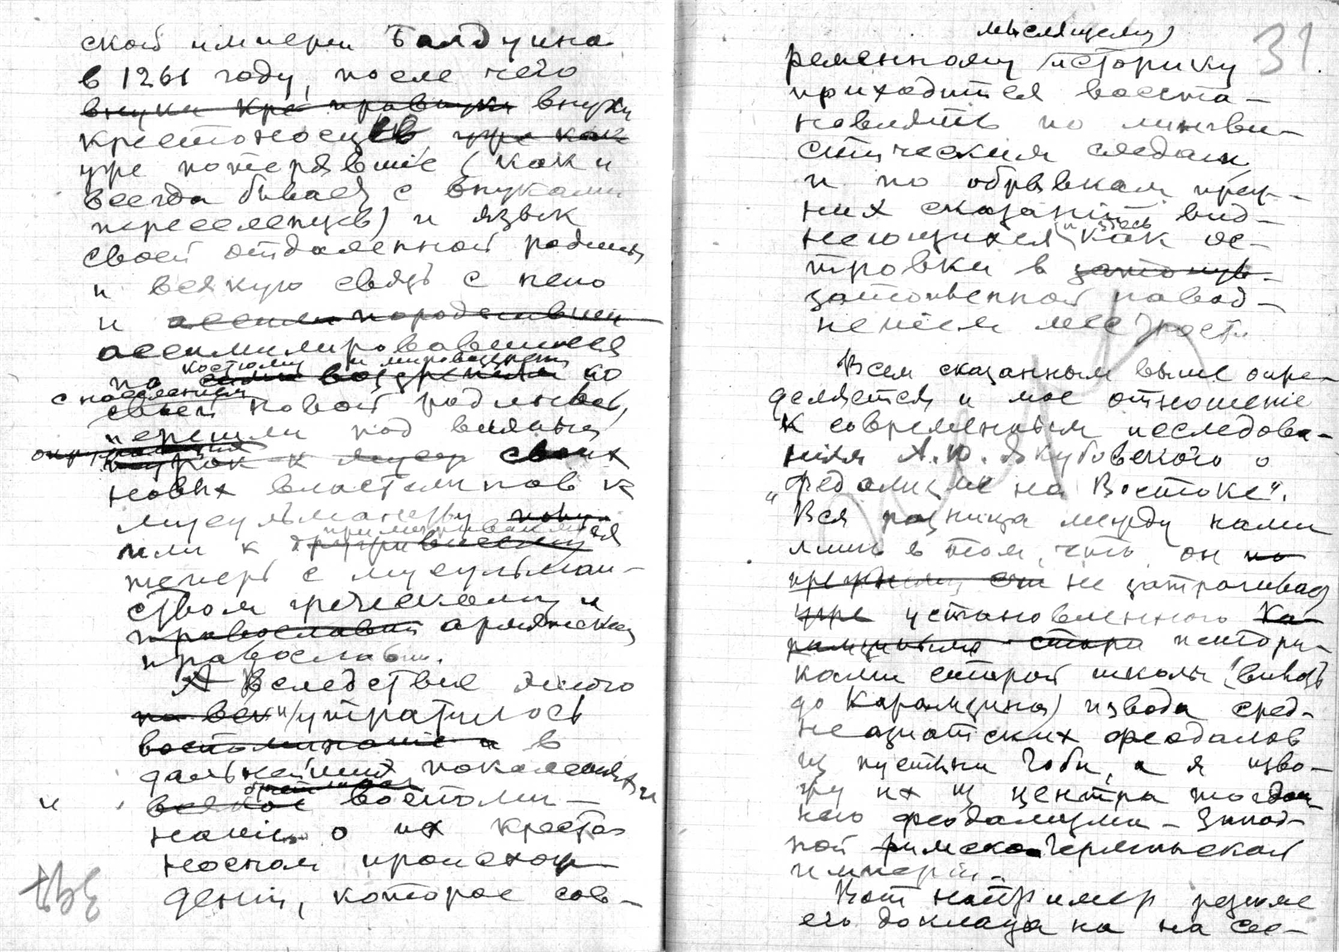 ской империи Балдуина
в 1261 году, после чего
внуки кре правнуки внуки
крестоносцев уже как
уже потерявшие (как и
всегда бывает с внуками
переселенцев) и язык
своей отдаленной родины
и всякую связь с нею
и
ассимилировавшиеся
костюму и мировоззрению
по воззрениям ко
с населением
своей новой родиной,
перешли под влиянием
окружения
внутрок к своих
новых властелинов к
мусульманству
или к
теперь с мусульман-
ством греческому и
православию армянскому
православию.
А вследствие этого
на век и утратилось
воспоминание и в
дальнейших поколениях и
и всякое воспоми-
нание о их кресто
носном происхож
дении, которое сов-
344
31
мыслящему
ременному историку
приходится восста-
новлять по лингви-
стическим следам
и по обрывкам преж-
них сказаний вид-
неющихся и здесь как ос-
тровки в затонув-
затопленной навод-
нением местности.
Всем сказанным выше опре-
деляется и мое отношение
к современным исследова-
ниям А.Ю. Якубовского о
"феодализме на Востоке".
Вся разница между нами
лишь в том, что он по
прежнему не затрагивает
уже установленного Ка-
рамзиным стара истори-
ками старой школы (вплоть
до Карамзина) извода сред-
неазиатских феодалов
из пустыни Гоби, а я изво-
жу их из центра тогдаш
него феодализма - Запад-
ной Римско-Германской
империи.
Вот например резюме
его доклада на на сес-